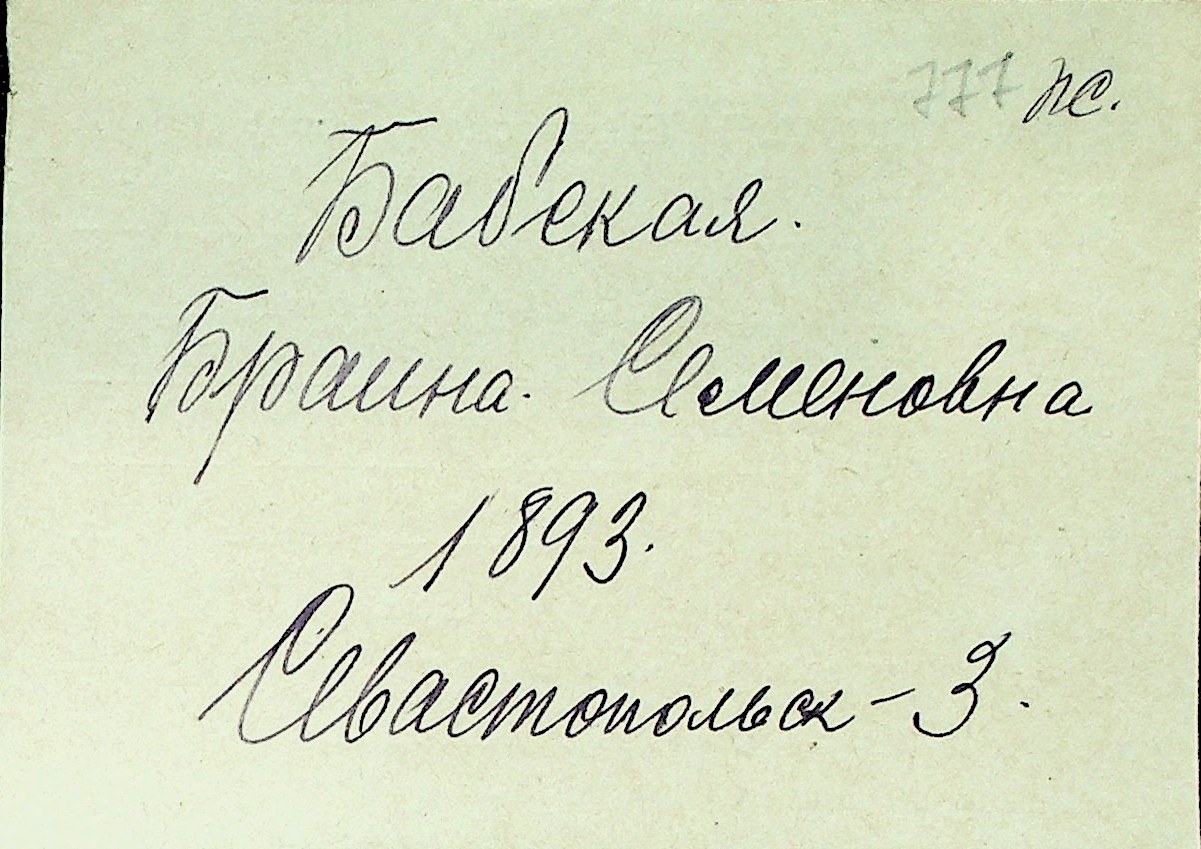 777 пс.
Бабская.
Браина. Семеновна
1893.
Севастопольск-3.